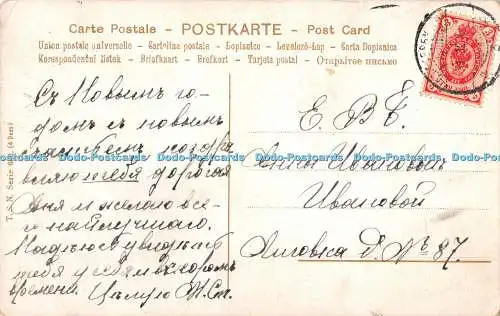 Carte Postale - POSTKARTE - Post Card
Union postale universelle - Cartolina postale - Dopisnice - Levelező-Lap - Karta Dopisnica
Korespondenční listek - Briefkaart - Brefkort - Tarjeta postal - Открытое письмо
Съ Новымъ го-
домъ съ новымъ
счастьемъ поздра
вляю тебя дорогая
Аня и желаю все-
го найлучшаго.
Надѣюсь увидѣть
тебя у себя въ скоромъ
времени. Цѣлую
Е. В. Б.
Аннѣ Ивановнѣ
Ивановой
Лиговка д. № 87
T. S. N. Serie
Dodo-Postcards Dodo-Postcards Dodo-Postcards Dodo-Postcards Dodo-Postcards